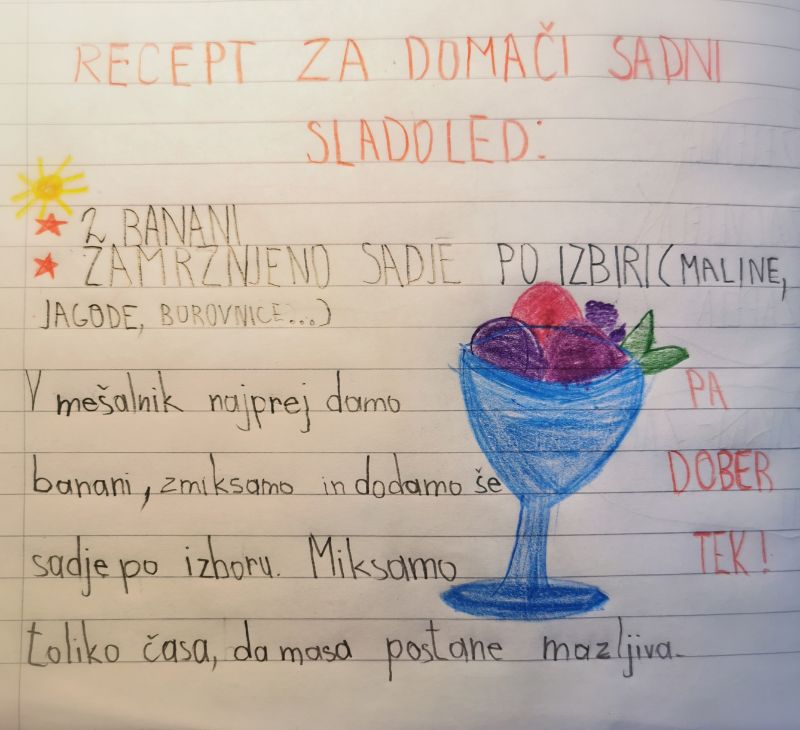 RECEPT ZA DOMAČI SADNI
SLADOLED:
2 BANANI
ZAMRZNJENO SADJE PO IZBIRI (MALINE,
JAGODE, BOROVNICE...)
V mešalnik najprej damo
banani, zmiksamo in dodamo še
sadje po izboru. Miksamo
toliko časa, da masa postane mazljiva.
PA
DOBER
TEK!